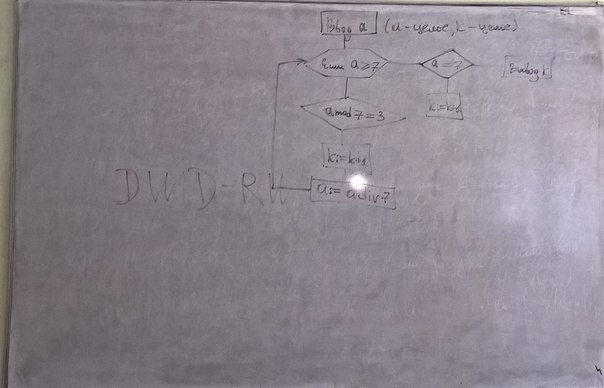 Ввод a (a-целое, k-целое)
Если a≥7
a=7
Вывод k
k:=k+1
a mod 7=3
k:=k+1
a:= a div 7
DWD-RW